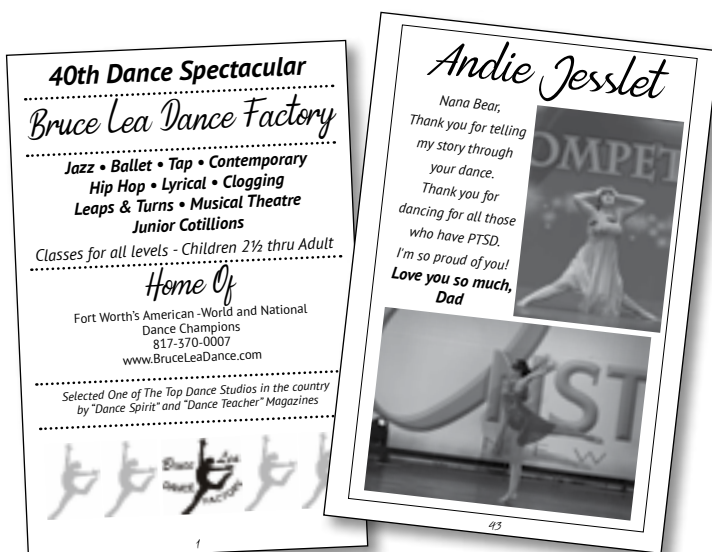 40th Dance Spectacular
Bruce Lea Dance Factory
Jazz • Ballet • Tap • Contemporary
Hip Hop • Lyrical • Clogging
Leaps & Turns • Musical Theatre
Junior Cotillions
Classes for all levels - Children 2½ thru Adult
Home Of
Fort Worth's American -World and National
Dance Champions
817-370-0007
www.BruceLeaDance.com
Selected One of The Top Dance Studios in the country
by “Dance Spirit” and “Dance Teacher” Magazines
Bruce Lea
DANCE FACTORY
1
Andie Jesslet
Nana Bear,
Thank you for telling
my story through
your dance.
Thank you for
dancing for all those
who have PTSD.
I'm so proud of you!
Love you so much,
Dad
OMPET
NST
N E W
43